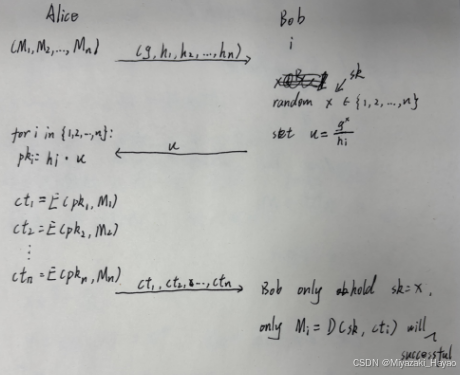 Alice Bob
(M₁, M₂, ..., Mₙ) (g, h₁, h₂, ..., hₙ) i
sk
random x ∈ {1, 2, ..., n}
for i in {1, 2, ..., n}: u set u = gˣ/hᵢ
pkᵢ = hᵢ · u
ct₁ = E(pk₁, M₁)
ct₂ = E(pk₂, M₂)
⋮
ctₙ = E(pkₙ, Mₙ) ct₁, ct₂, ..., ctₙ Bob only hold sk = x,
only Mᵢ = D(sk, ctᵢ) will
successful
CSDN @Miyazaki_Hayao